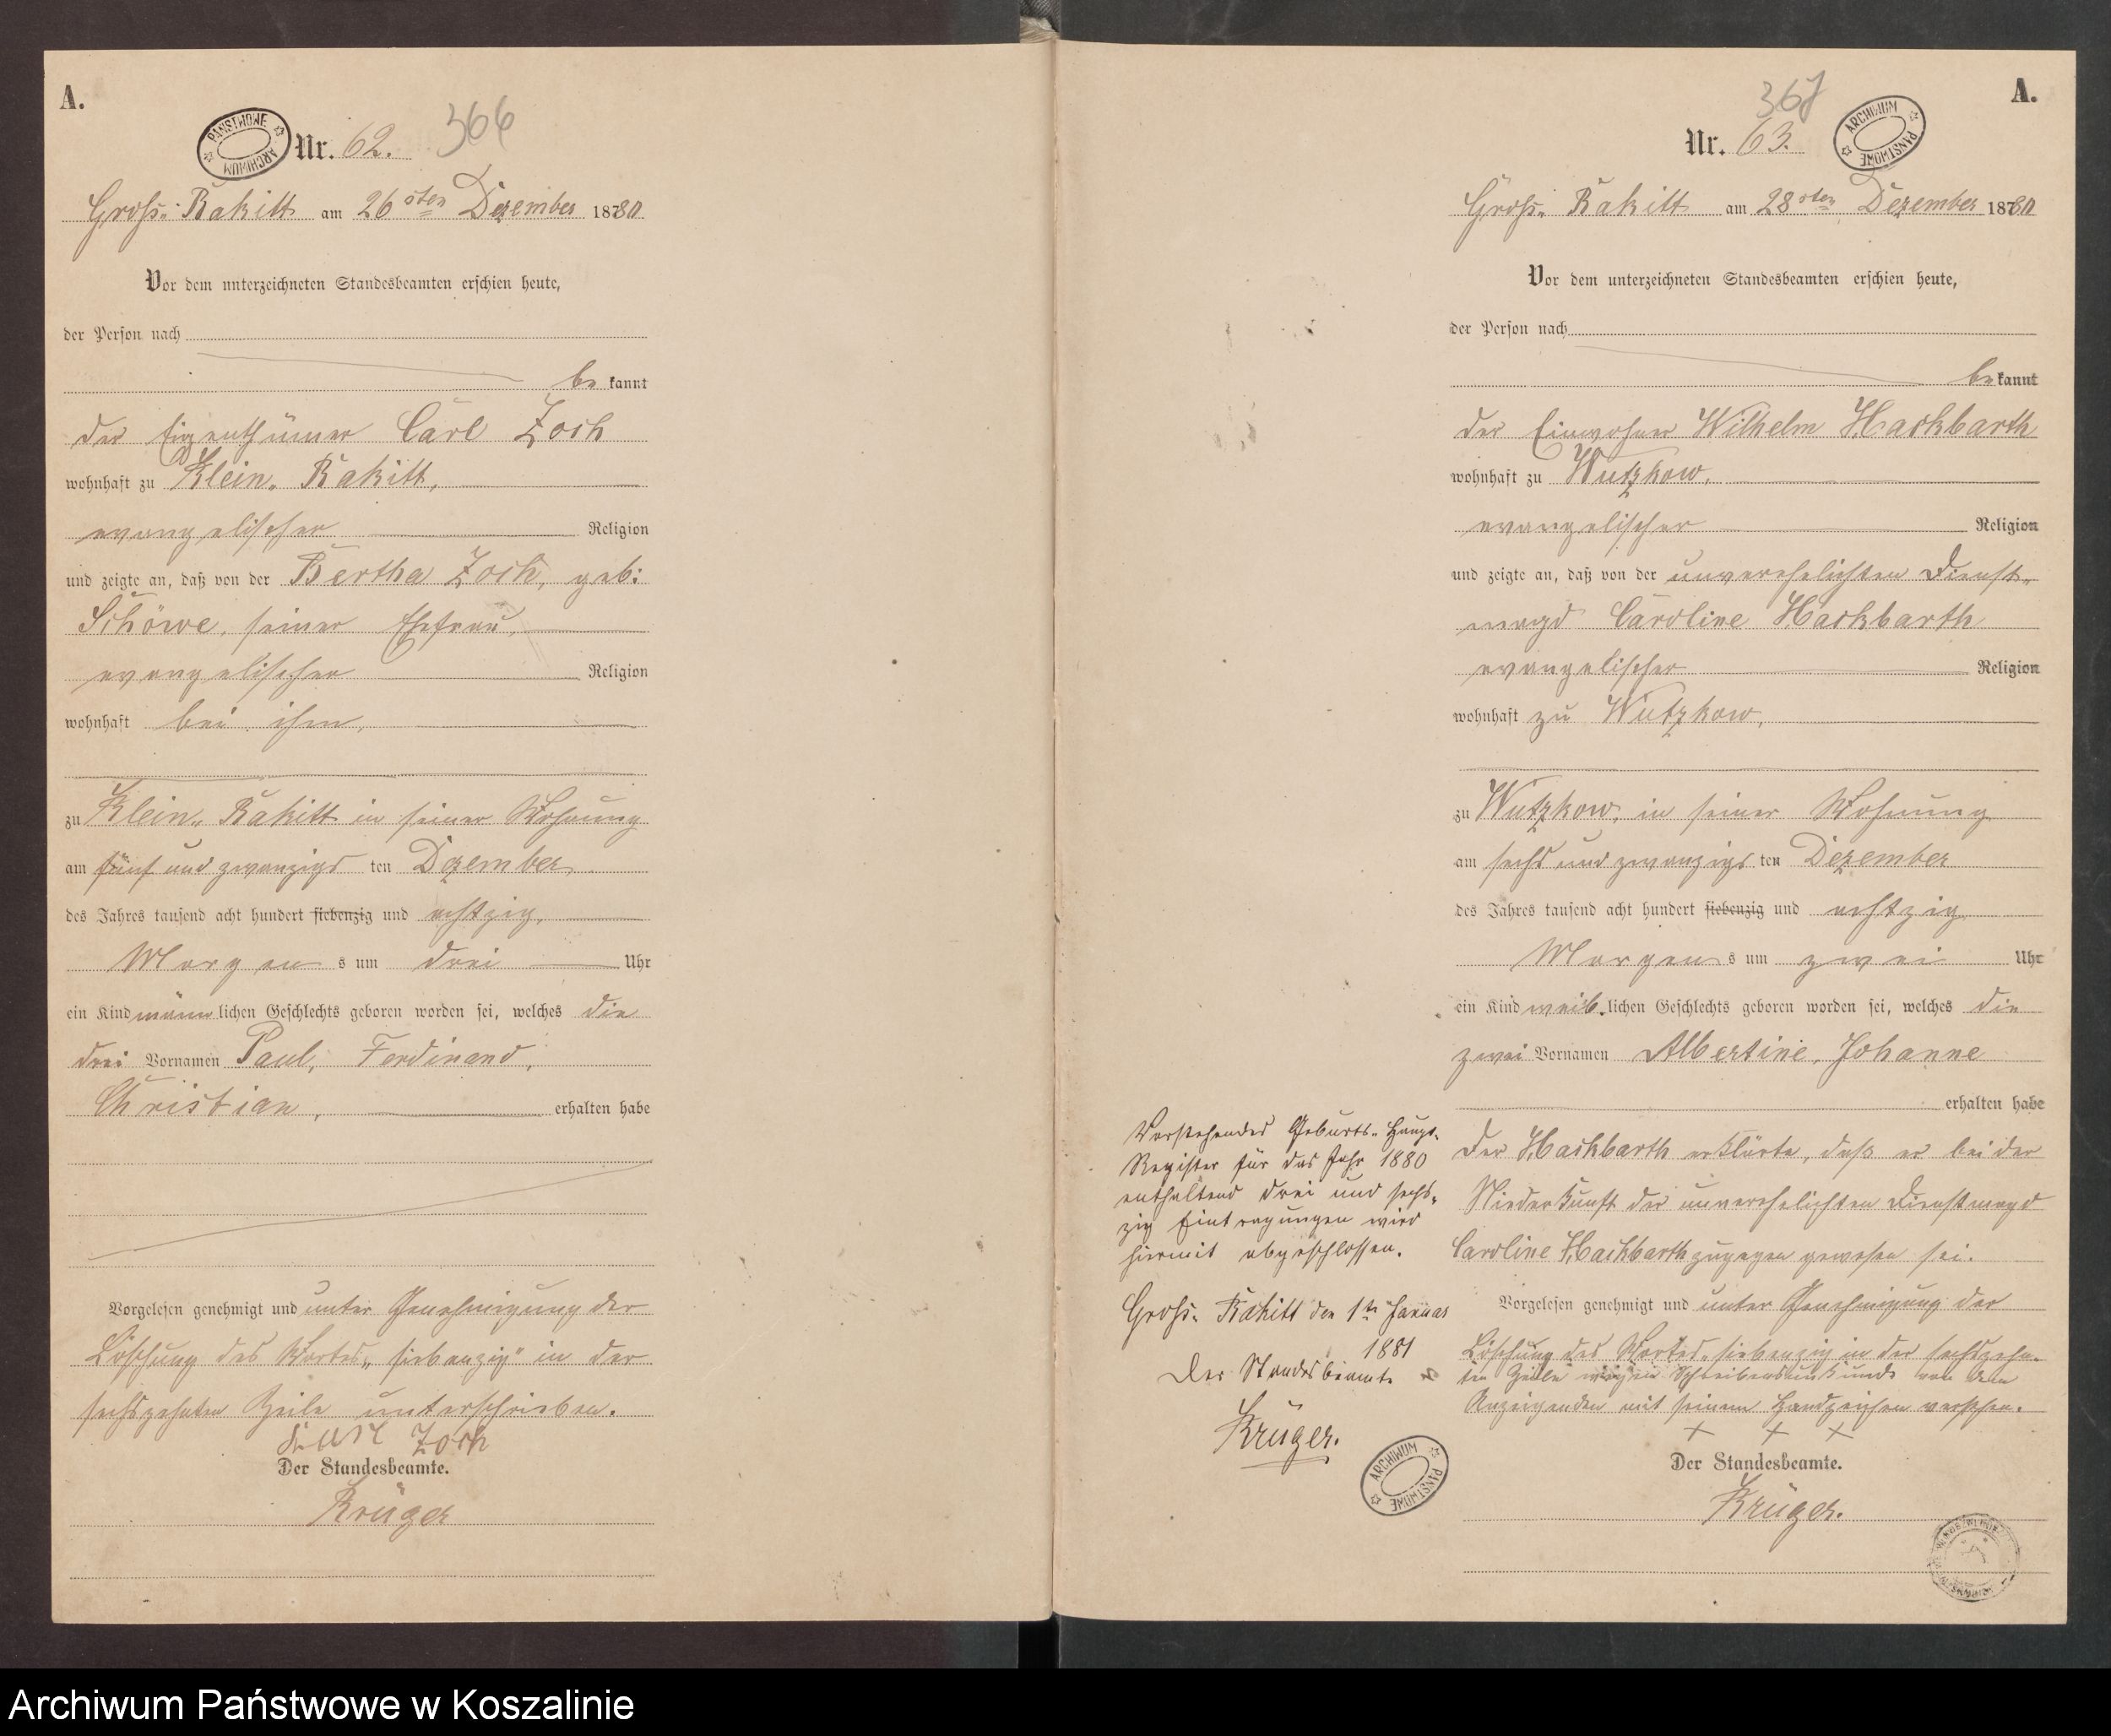 A.
PANSTWOWE ARCHIWUM
Nr. 62.
366
Groß-Rakitt am 26 sten Dezember 1880
Vor dem unterzeichneten Standesbeamten erschien heute,
der Person nach
be kannt
der Eigenthümer Carl Zoch
wohnhaft zu Klein-Rakitt,
evangelischer Religion
und zeigte an, daß von der Bertha Zoch, geb:
Schöwe, seiner Ehefrau,
evangelischer Religion
wohnhaft bei ihm,
zu Klein-Rakitt in seiner Wohnung
am fünf und zwanzigs ten Dezember
des Jahres tausend acht hundert siebenzig und achtzig,
Morgen s um drei Uhr
ein Kind männ lichen Geschlechts geboren worden sei, welches die
drei Vornamen Paul, Ferdinand,
Christian, erhalten habe
Vorgelesen genehmigt und unter Genehmigung der
Löschung des Wortes „siebenzig" in der
sechszehnten Zeile unterschrieben.
Karl Zoch
Der Standesbeamte.
Krüger
A.
367
ARCHIWUM PANSTWOWE
Nr. 63.
Groß-Rakitt am 28 sten Dezember 1880
Vor dem unterzeichneten Standesbeamten erschien heute,
der Person nach
be kannt
der Einwohner Wilhelm Hackbarth
wohnhaft zu Wutzkow,
evangelischer Religion
und zeigte an, daß von der unverehelichten Dienst-
magd Caroline Hackbarth
evangelischer Religion
wohnhaft zu Wutzkow,
zu Wutzkow, in seiner Wohnung
am sechs und zwanzigs ten Dezember
des Jahres tausend acht hundert siebenzig und achtzig
Morgen s um zwei Uhr
ein Kind weib lichen Geschlechts geboren worden sei, welches die
zwei Vornamen Albertine, Johanne
erhalten habe
Der Hackbarth erklärte, daß er bei der
Niederkunft der unverehelichten Dienstmagd
Caroline Hackbarth zugegen gewesen sei.
Vorgelesen genehmigt und unter Genehmigung der
Löschung des Wortes „siebenzig in der sechszehn-
ten Zeile wegen Schreibensunkunde von dem
Anzeigenden mit seinem Handzeichen versehen.
+ + +
Der Standesbeamte.
Krüger.
Vorstehendes Geburts-Haupt-
Register für das Jahr 1880
enthaltend drei und sechs-
zig Eintragungen wird
hiermit abgeschlossen.
Groß-Rakitt den 1ten Januar
1881
Der Standesbeamte
Krüger.
ARCHIWUM PANSTWOWE
Archiwum Państwowe w Koszalinie